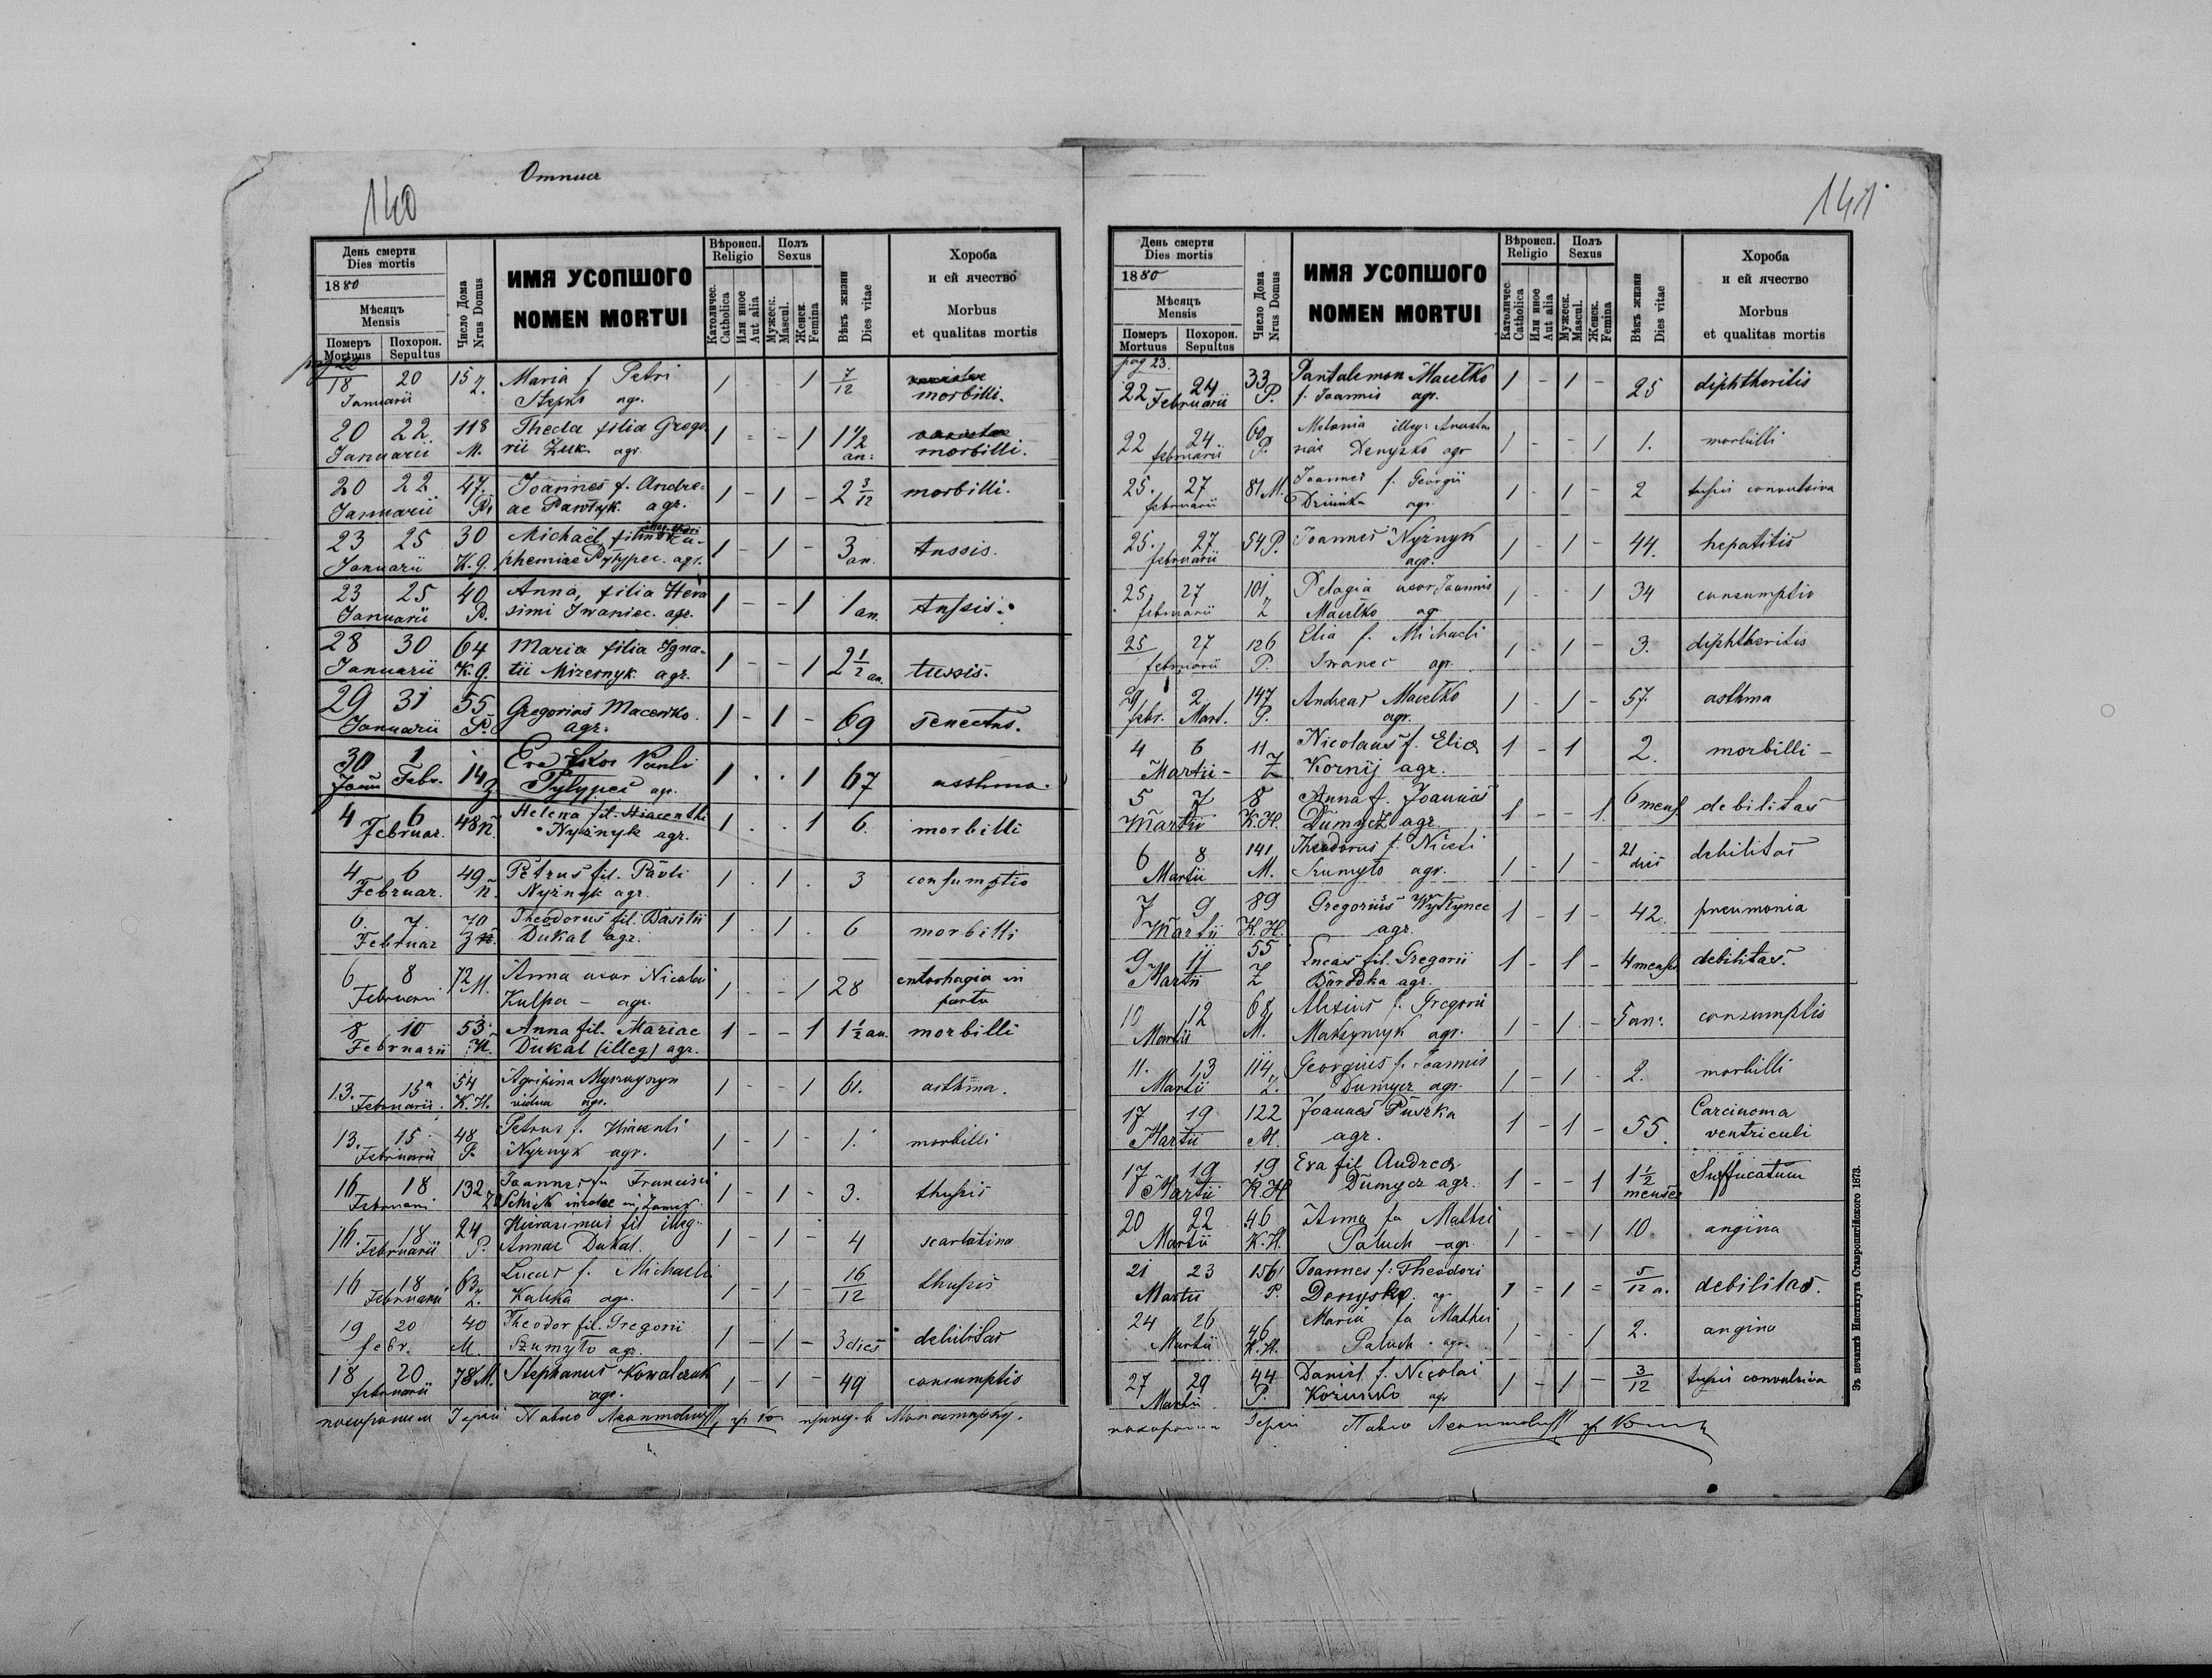 140
День смерти
Dies mortis
1880
Мѣсяць
Mensis
Померъ
Mortuus
Похорон.
Sepultus
Число Дома
Nrus Domus
ИМЯ УСОПШОГО
NOMEN MORTUI
Вѣроисп.
Religio
Католичес.
Catholica
Или иное
Aut alia
Полъ
Sexus
Мужеск.
Mascul.
Женск.
Femina
Вѣкъ жизни
Dies vitae
Хороба
и ей ячество
Morbus
et qualitas mortis
18 20 15 Maria f Petri 1 - - 1 7/12
Januarii Z. Stepko agr. morbilli.
20 22 118 Thecla filia Grego 1 = - 1 1 1/2
Januarii M. rii Żuk. agr. an: morbilli.
20 22 47. Joannes f. Andre= 1 - 1 - 2 3/12 morbilli.
Januarii P. ae Pawłyk. agr.
23 25 30 Michaël filius Eu- 1 - 1 - 3 tussis.
Januarii K.g. phemiae Pyłypec. agr. an.
23 25 40 Anna, filia Hera 1 - - 1 1 an. tussis.
Januarii P. simi Iwaniec. agr.
28 30 64 Maria filia Igna- 1 - - 1 2 1/2 an. tussis.
Januarii K.g. tii Mizernyk agr.
29 31 55 Gregorius Macenko 1 - 1 - 69 senectus.
Januarii P. agr.
30 1 14 Eva uxor Pauli 1 . . 1 67 asthma.
Janu Febr. Z Pyłypec agr.
4 6 48 Helena fil. Hiacenthi 1 . . 1 6. morbilli
Februar. П. Nyżnyk agr.
4 6 49 Petrus fil. Pavli 1 . 1 . 3 consumptio
Februar. П. Nyżnyk agr.
6. 7. 70 Theodorus fil. Basilii 1 . 1 . 6 morbilli
Februar Dukal agr.
6 8 72 M. Anna uxor Nicolai 1 - - 1 28 in
Februarii Kulpa - agr. partu
8 10 53 Anna fil. Mariae 1 - - 1 1 1/2 an. morbilli
Februarii Dukal (illeg) agr.
13. 15 54 Agripina 1 - - 1 61. asthma.
Februarii. K.H. vidua agr.
13. 15 48 Petrus f. Hiacenti 1 - 1 - 1. morbilli
Februarii P. Nyżnyk agr.
16 18 132 Joannes Francisci 1 - 1 - 3. thussis
Februarii Schick
16. 18 24 Hierasimus fil illeg. 1 - 1 - 4 scarlatina
Februarii P. Annae Dukal.
16 18 63 Lucas f. Michaelis 1 - 1 - 16/12 thussis
Februarii Z. Kaluka agr.
19 20 40 Theodor fil. Gregorii 1 - 1 - 3 dies debilitas
febr. M. Szumyło agr.
18 20 78 M. Stephanus Kowalczuk 1 - 1 - 49 consumptio
februarii agr.
Павло
141
День смерти
Dies mortis
1880
Мѣсяць
Mensis
Померъ
Mortuus
Похорон.
Sepultus
Число Дома
Nrus Domus
ИМЯ УСОПШОГО
NOMEN MORTUI
Вѣроисп.
Religio
Католичес
Catholica
Или иное
Aut alia
Полъ
Sexus
Мужеск.
Mascul.
Женск.
Femina
Вѣкъ жизни
Dies vitae
Хороба
и ей ячество
Morbus
et qualitas mortis
pag 23.
22 24 33 Pantalemon Macełko 1 - 1 - 25 diphtheritis
Februarii P. f. Joannis agr.
22 24 60 Melania illeg: Anasta 1 - - 1 1. morbilli
februarii P. siae Denysko agr
25. 27 81 M. Joannes f. Georgii 1 - 1 - 2 tussis convulsiva
februarii agr.
25. 27 54 P. Joannes Nyżnyk 1 - 1 - 44. hepatitis
februarii agr.
25. 27 101 Pelagia uxor Joannis 1 - - 1 34 consumptio
februarii Z Macełko agr.
25 27 126 Elia f. Michaeli 1 - 1 - 3. diphtheritis
februarii P. Iwanec agr.
29 2. 147 Andreas Macełko 1 - 1 - 57. asthma
febr. Mart. P. agr.
4 6 11 Nicolaus f. Elia 1 - 1 2. morbilli -
Martii - Z Kornij agr.
5 7 8 Anna f. Joannis 1 - - 1 6 mens. debilitas
Martii K.H. Dumycz agr.
6 8 141 Theodorus f. 1 - 1 - 21 dies debilitas
Martii M. Szumyło agr.
7 9 89 Gregorius 1 - 1 - 42. pneumonia
Martii K.H. agr.
9 11 55 Lucas fil. Gregorii 1 - 1 - 4 menses debilitas.
Martii Z agr.
10 12 68 Alexius f. Gregorii 1 - 1 - 5 an: consumptio
Martii M. Maksymyk agr.
11. 13 114 Georgius f. Joannis 1 - 1 - 2. morbilli
Martii Z. Dumycz agr.
17 19 122 Joannes Puszka 1 - 1 - 55. Carcinoma
Martii M. agr. ventriculi
17 19 19 Eva fil Andrea 1 - - 1 1 1/2 Suffucatum
Martii K.H Dumycz agr. menses
20 22 46 Anna fa Mathei 1 - - 1 10. angina
Martii K.H. Paluch - agr.
21 23 156 Joannes f: Theodori 1 = 1 = 5/12 a. debilitas.
Martii P. Denysko. agr
24 26 46 Maria fa Mathei 1 - - 1 2. angina
Martii K.H. Paluch - agr.
27 29 44 Daniel f. Nicolai 1 - 1 - 3/12 tussis convulsiva
Martii P. agr
Павло
Зъ печатнѣ Института Ставропигійского 1873.